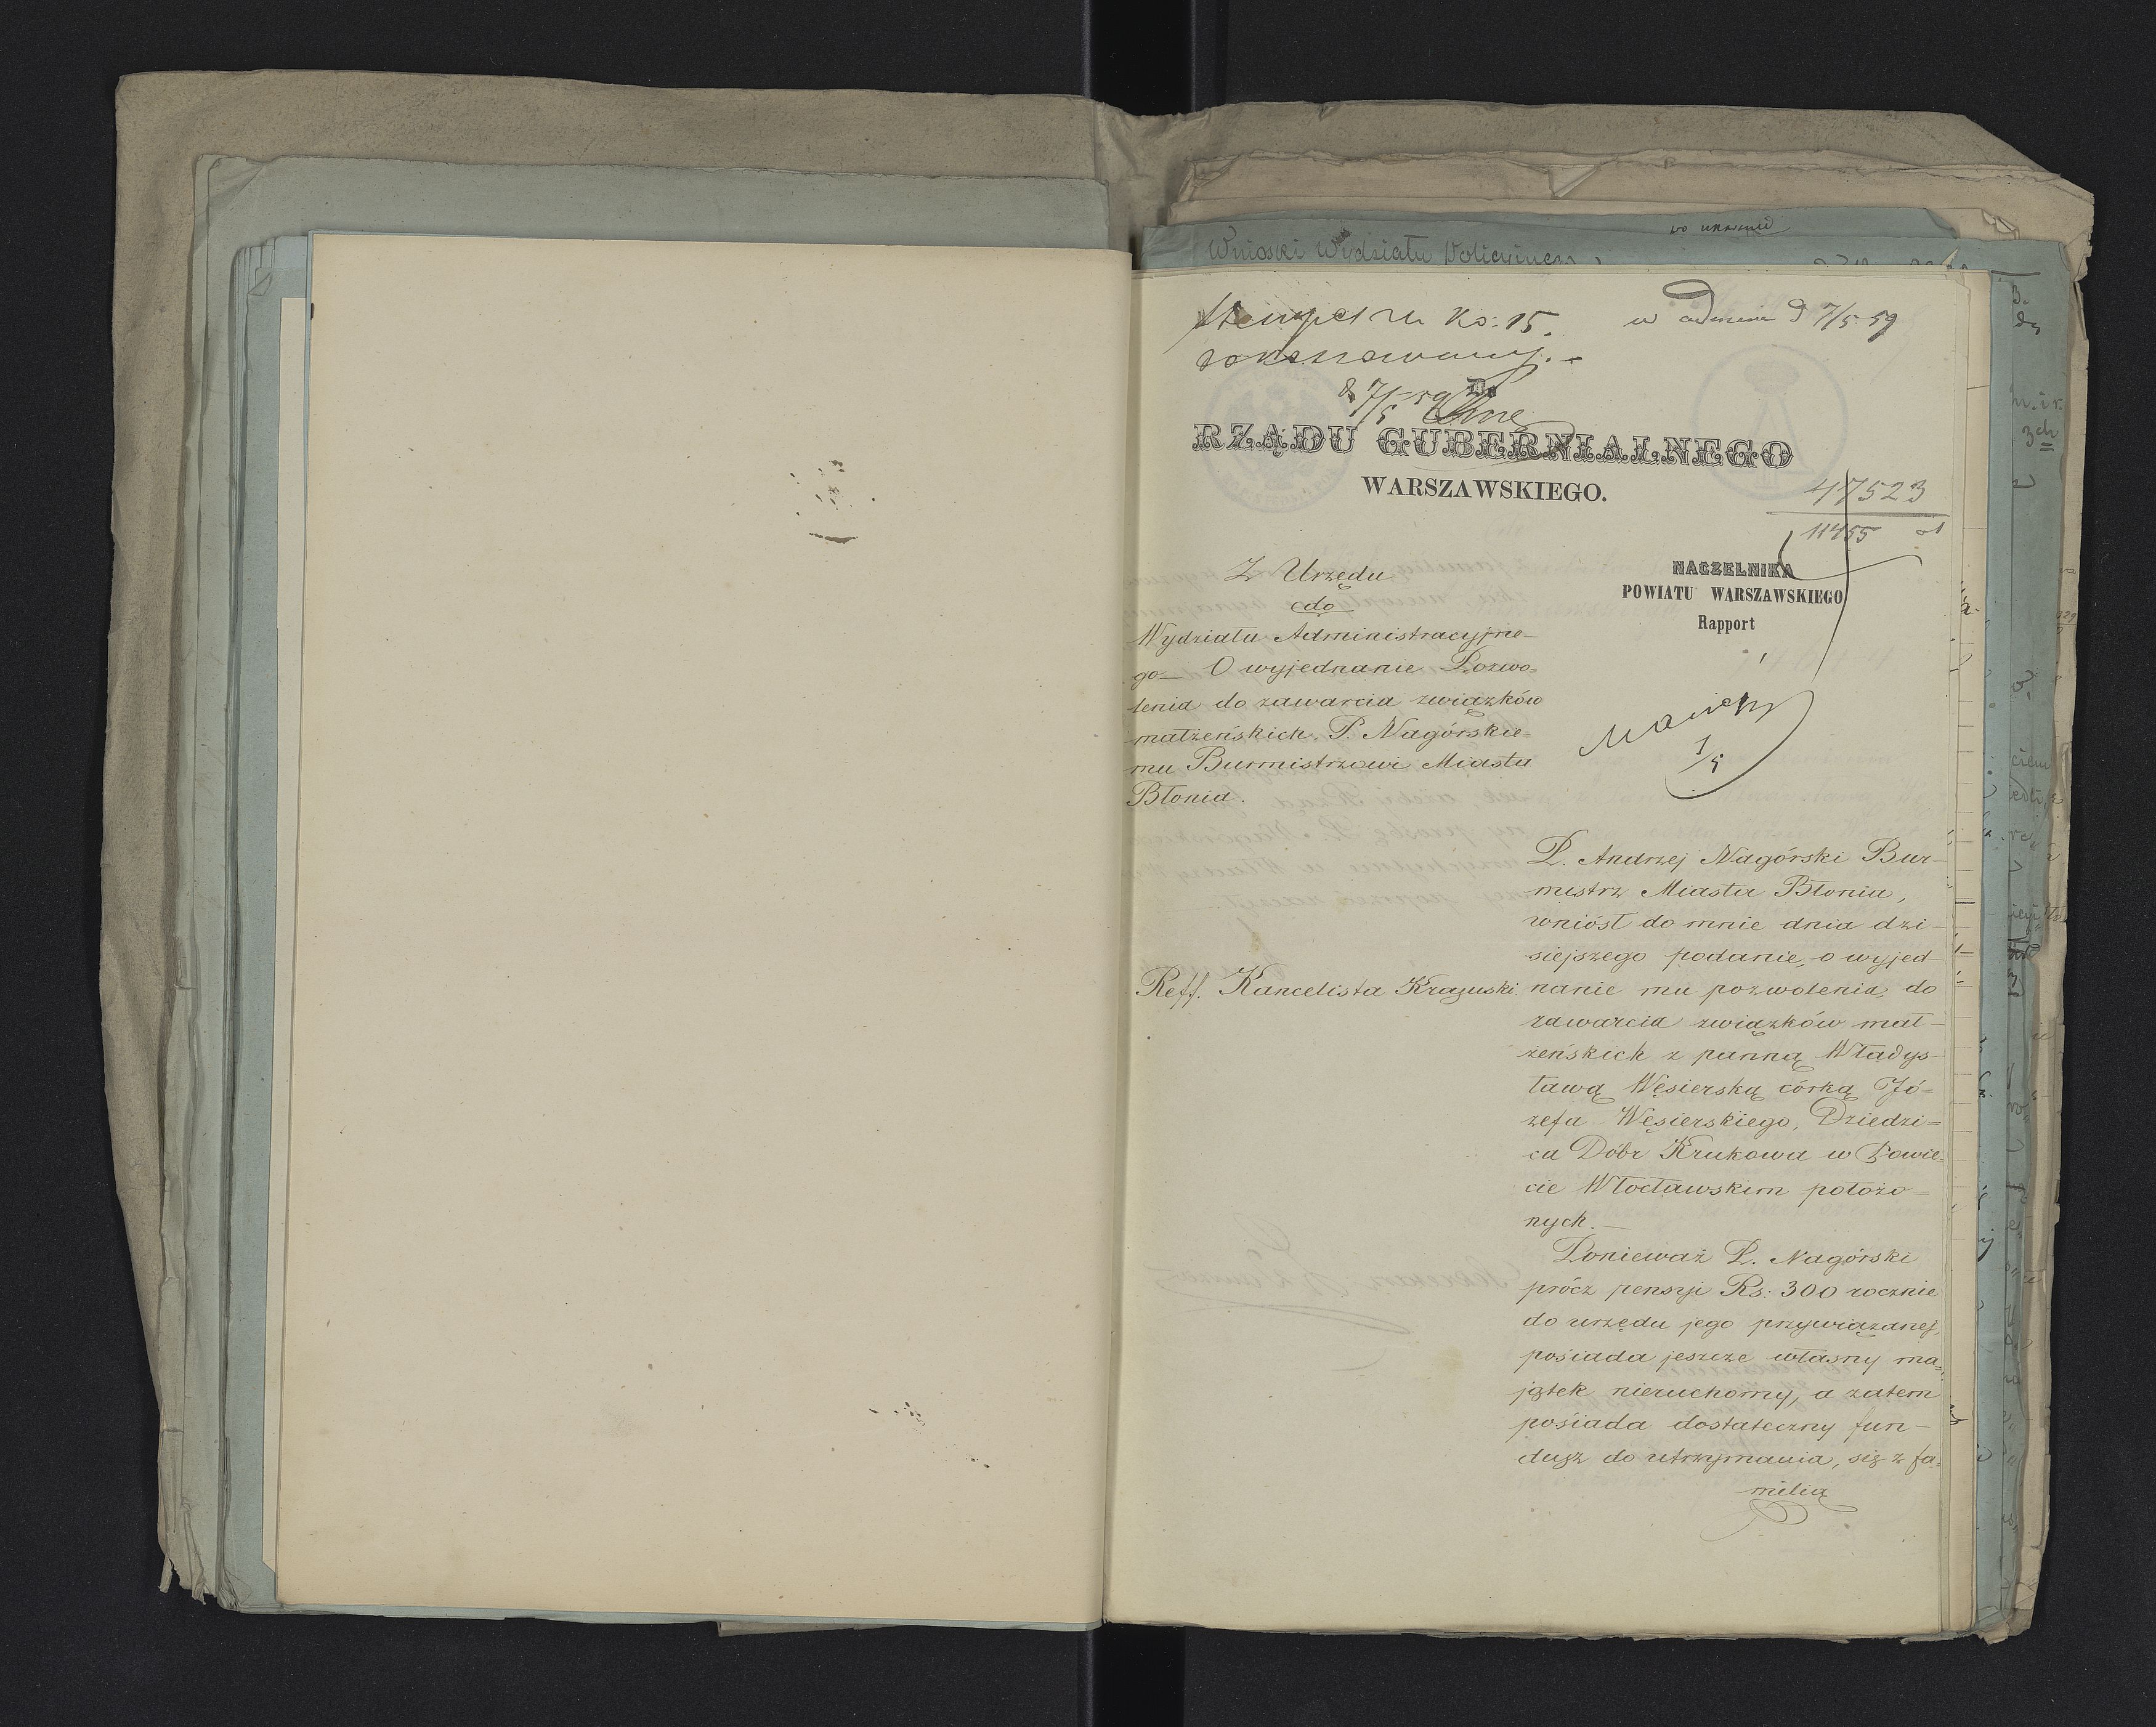 Wnioski Wydziału Policyjnego
Stempel za Ko: 15.
w admin d 7/5 59
skassowany. -
d 7/5 59
Do
RZĄDU GUBERNIALNEGO
WARSZAWSKIEGO.
47523
11455
NACZELNIKA
POWIATU WARSZAWSKIEGO
Rapport
Z Urzędu
do
Wydziału Administracyjne-
go— O wyjednanie Pozwo=
lenia do zawarcia związków
małżeńskich P. Nagórskie=
mu Burmistrzowi Miasta
Błonia.
1/5
Reff. Kancelista Krazuski
P. Andrzej Nagórski Bur-
mistrz Miasta Błonia,
wniósł do mnie dnia dzi-
siejszego podanie, o wyjed-
nanie mu pozwolenia, do
zawarcia związków mał-
żeńskich z panną Władys-
ławą Węsierską córką Jó=
zefa Węsierskiego, Dziedzi=
ca Dóbr Krukowa w Powie=
cie Włocławskim położo=
nych.—
Ponieważ P. Nagórski
prócz pensyi Rs: 300 rocznie
do urzędu jego przywiązanej,
posiada jeszcze własny ma=
jątek nieruchomy, a zatem
posiada dostateczny fun-
dusz do utrzymania, się z fa=
milią